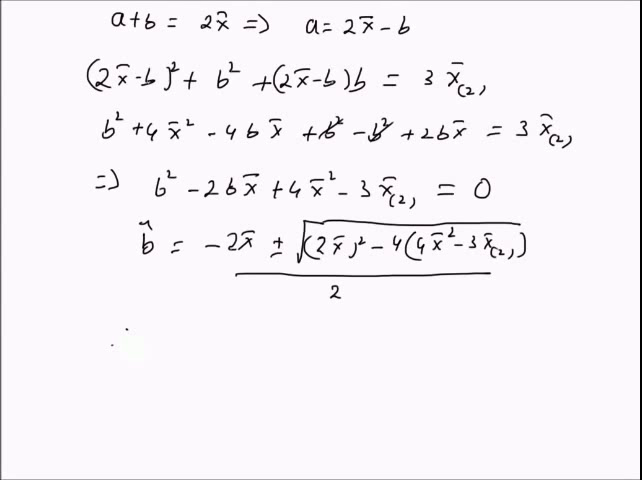 a+b = 2x̄ => a = 2x̄ - b
(2x̄-b)² + b² + (2x̄-b)b = 3 x̄₍₂₎
b² + 4x̄² - 4bx̄ + b² - b² + 2bx̄ = 3 x̄₍₂₎
=> b² - 2bx̄ + 4x̄² - 3x̄₍₂₎ = 0
b̂ = -2x̄ ± √((2x̄)² - 4(4x̄² - 3x̄₍₂₎))
2